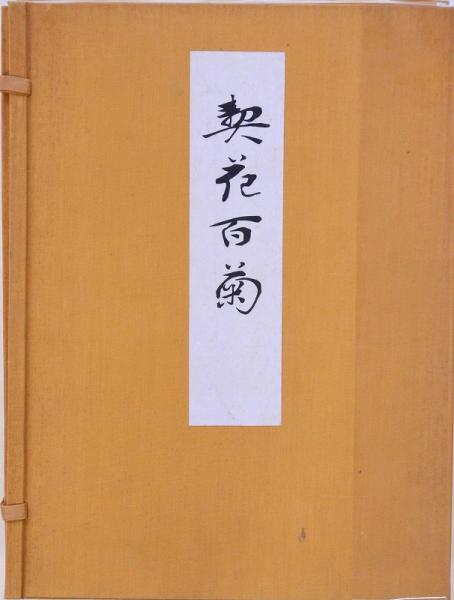 契花百菊